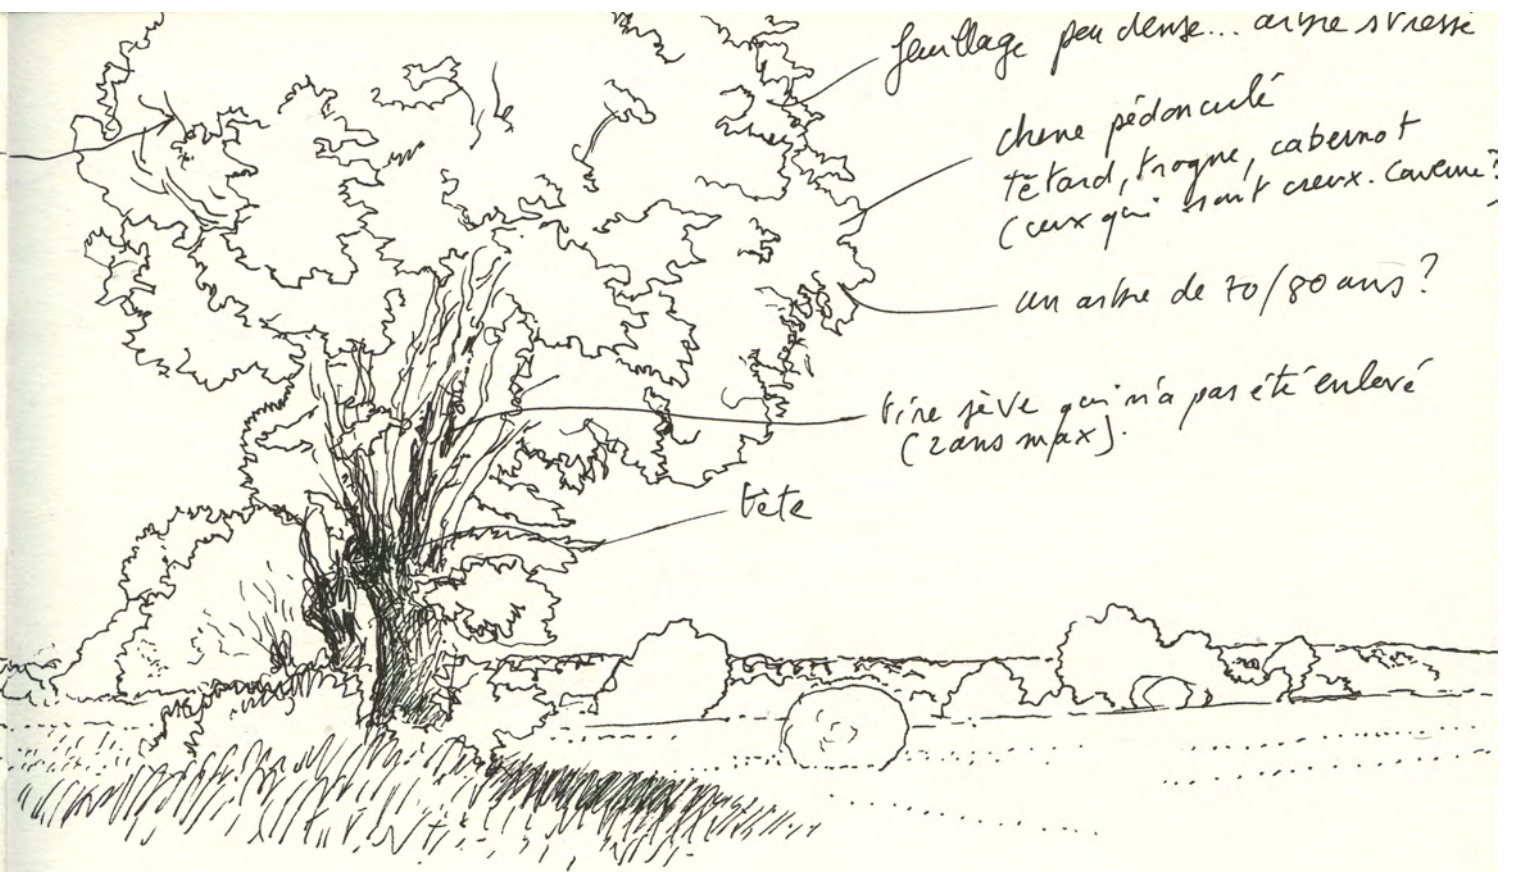 feuillage peu dense... arbre stressé
chêne pédonculé
têtard, trogne, cabernot
(ceux qui sont creux. Caverne?
un arbre de 70/80 ans?
tire sève qui n'a pas été enlevé
(2 ans max).
tête